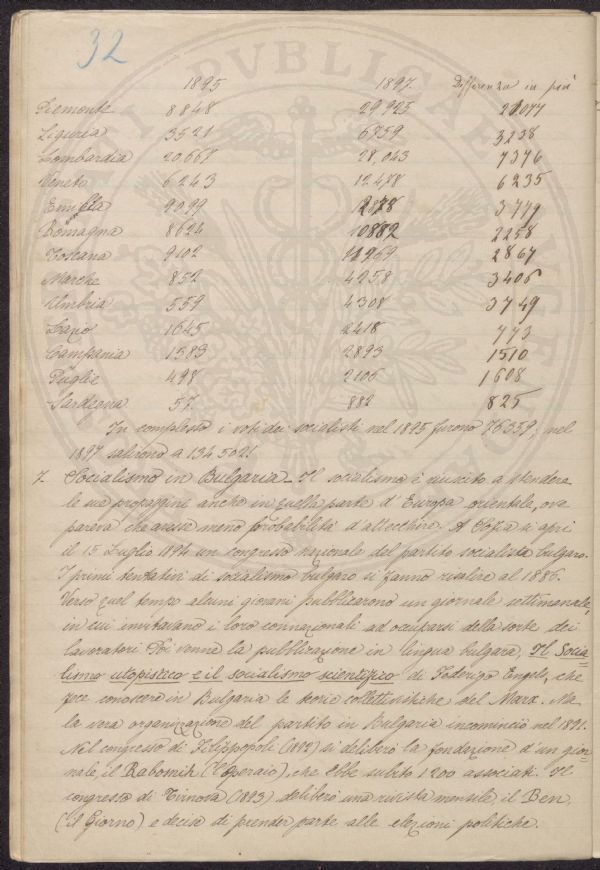 32
1895 1897. Differenza in più
Piemonte 8848 29925 21077
Liguria 3521 6759 3238
Lombardia 20,667 28,043 7376
Veneto 6243 12478 6235
Emilia 9099 3779
Romagna 8624 10882 2258
Toscana 9102 11969 2867
Marche 852 4258 3406
Umbria 559 4308 3749
Lazio 1645 2418 773
Campania 1383 2893 1510
Puglie 498 2106 1608
Sardegna 57 882 825
In complesso i voti dei socialisti nel 1895 furono 76359; nel
1897 salirono a 134502!
7. Socialismo in Bulgaria_ Il socialismo è riuscito a stendere
le sue propaggini anche in quella parte d'Europa orientale, ove
pareva che avesse meno probabilità d'attecchire. A Sofia si aprì
il 15 Luglio 1894 un congresso nazionale del partito socialista bulgaro.
I primi tentativi di socialismo bulgaro si fanno risalire al 1886.
Verso quel tempo alcuni giovani pubblicarono un giornale settimanale,
in cui invitavano i loro connazionali ad occuparsi della sorte dei
lavoratori. Poi venne la pubblicazione in lingua bulgara, Il Socia=
lismo utopistico e il socialismo scientifico di Federigo Engels, che
fece conoscere in Bulgaria le teorie collettivistiche del Marx. Ma
la vera organizzazione del partito in Bulgaria incominciò nel 1891.
Nel congresso di Filippopoli (1892) si deliberò la fondazione d'un gior=
nale, il Rabotnik (l'Operaio), che ebbe subito 1200 associati. Il
congresso di Tirnova (1893) deliberò una rivista mensile, il Den
(Il Giorno) e decise di prender parte alle elezioni politiche.